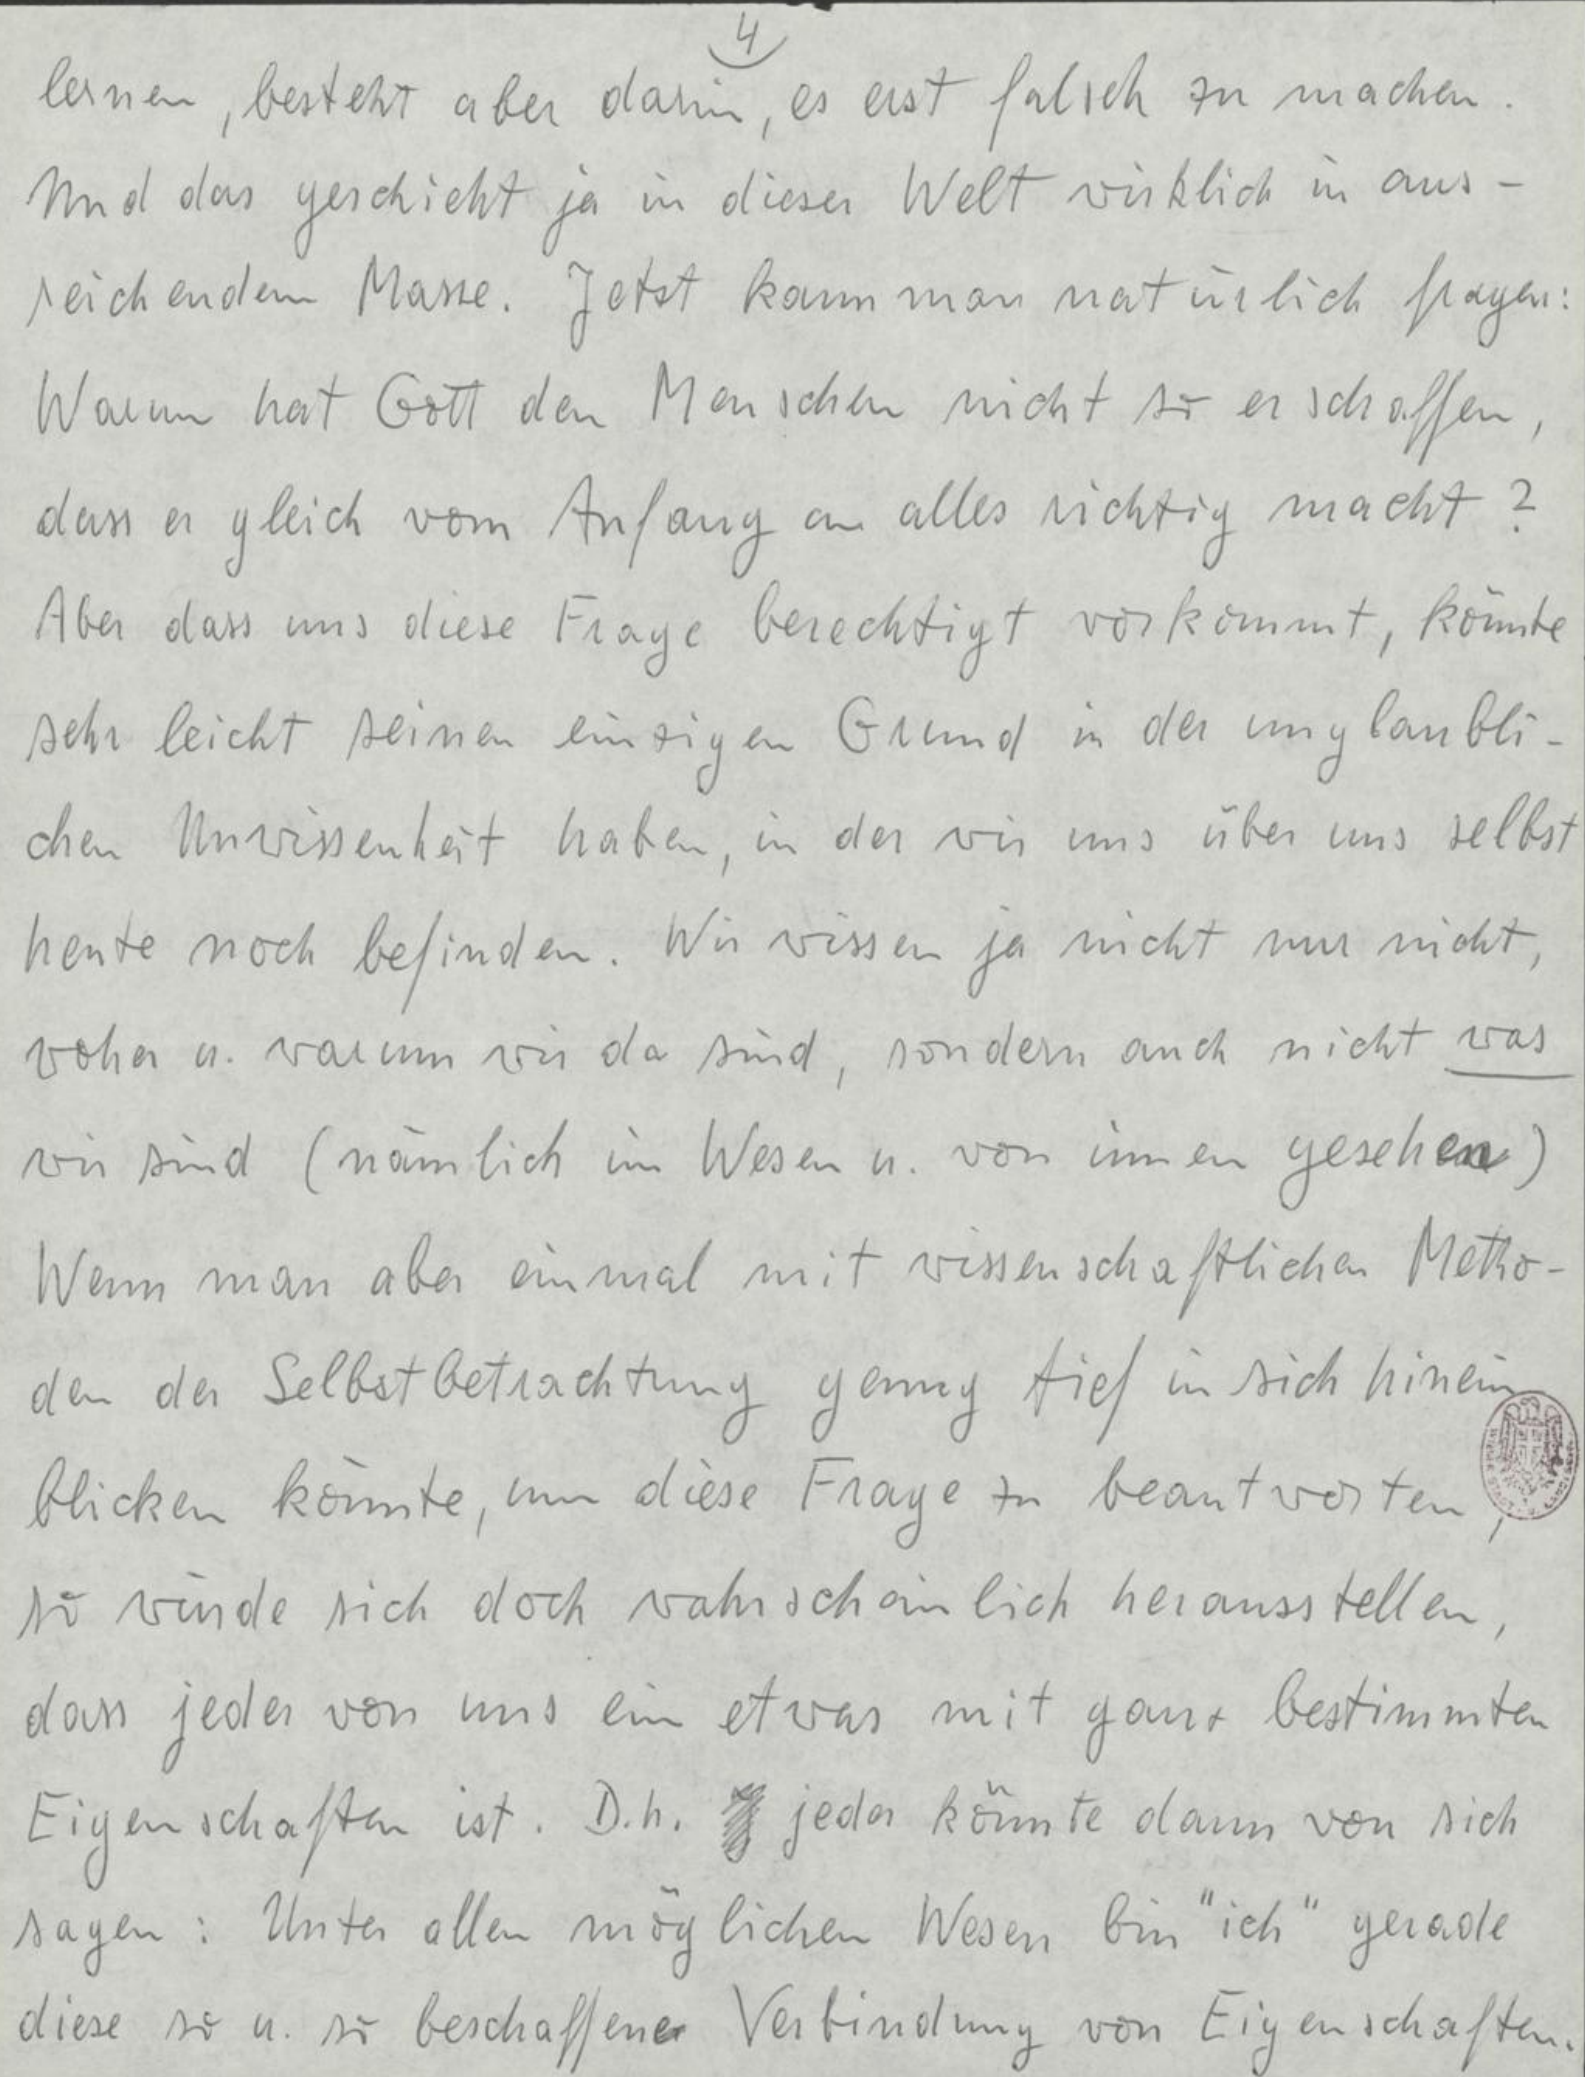 4
lernen, besteht aber darin, es erst falsch zu machen.
Und das geschieht ja in dieser Welt wirklich in aus-
reichendem Masse. Jetzt kann man natürlich fragen:
Warum hat Gott den Menschen nicht so erschaffen,
dass er gleich vom Anfang an alles richtig macht?
Aber dass uns diese Frage berechtigt vorkommt, könnte
sehr leicht seinen einzigen Grund in der unglaubli-
chen Unwissenheit haben, in der wir uns über uns selbst
heute noch befinden. Wir wissen ja nicht nur nicht,
woher u. warum wir da sind, sondern auch nicht was
wir sind (nämlich im Wesen u. von innen gesehen)
Wenn man aber einmal mit wissenschaftlichen Metho-
den der Selbstbetrachtung genug tief in sich hinein
blicken könnte, um diese Frage zu beantworten,
so würde sich doch wahrscheinlich herausstellen,
dass jeder von uns ein etwas mit ganz bestimmten
Eigenschaften ist. D.h. jeder könnte dann von sich
sagen: Unter allen möglichen Wesen bin "ich" gerade
diese so u. so beschaffene Verbindung von Eigenschaften.